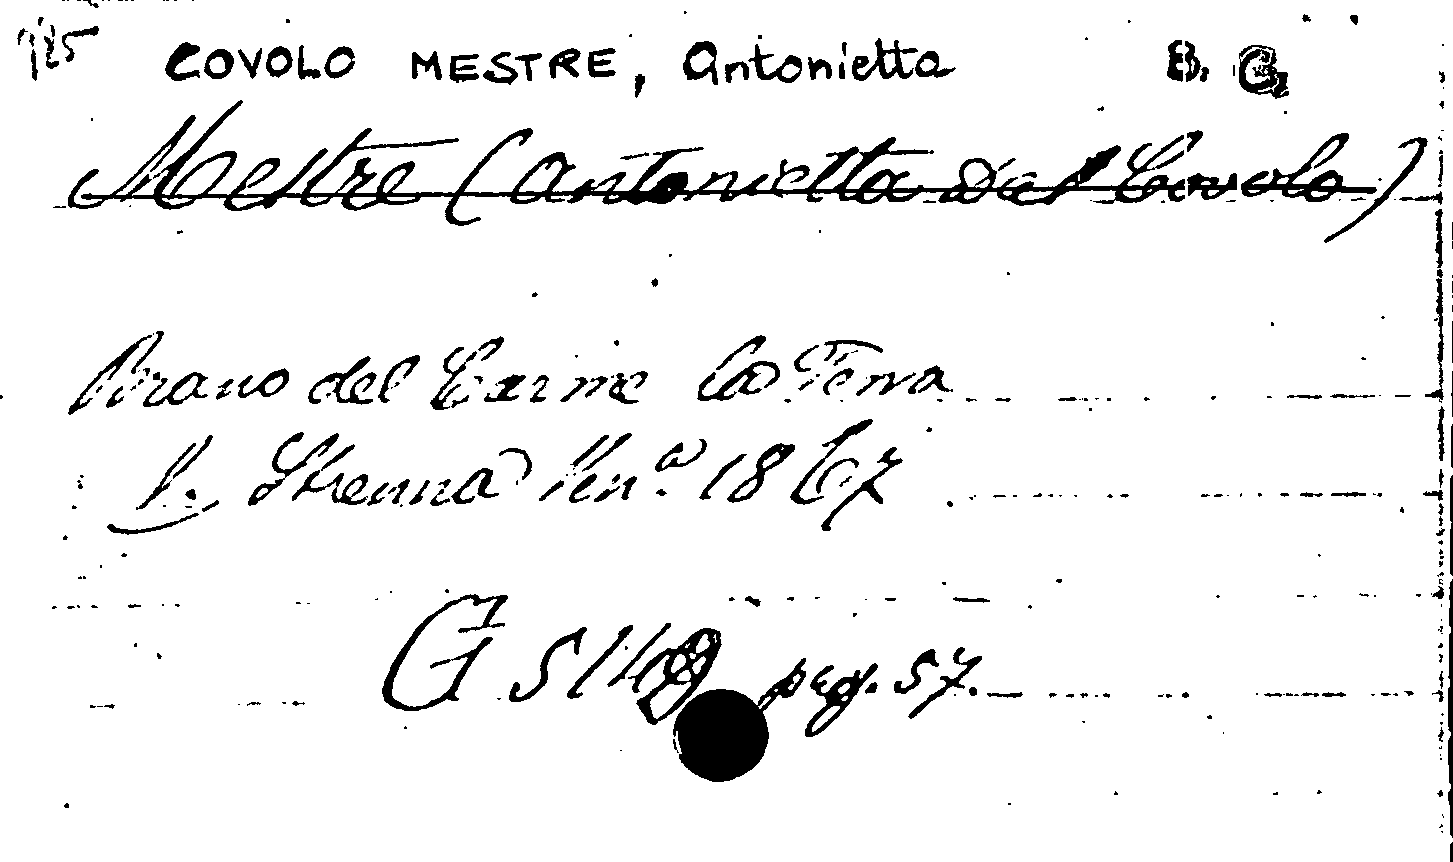 COVOLO MESTRE, Antonietta B. G.
Mestre (Antonietta Dal Covolo)
Brano del Carme La Terra
V. Strenna Ven.a 1867
G pag. 57.